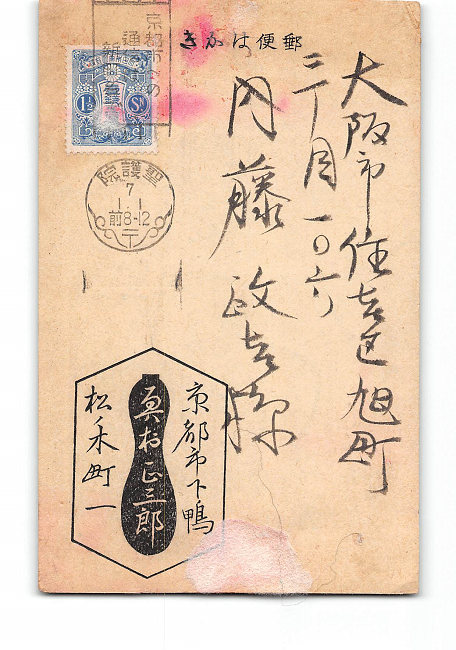 郵便はかき
大阪市住吉区旭町
二丁目一〇六
内藤政吉様
京都市下鴨
正三郎
松ノ木町一
1½ Sn
聖護院
7
1.1
前8-12
京都